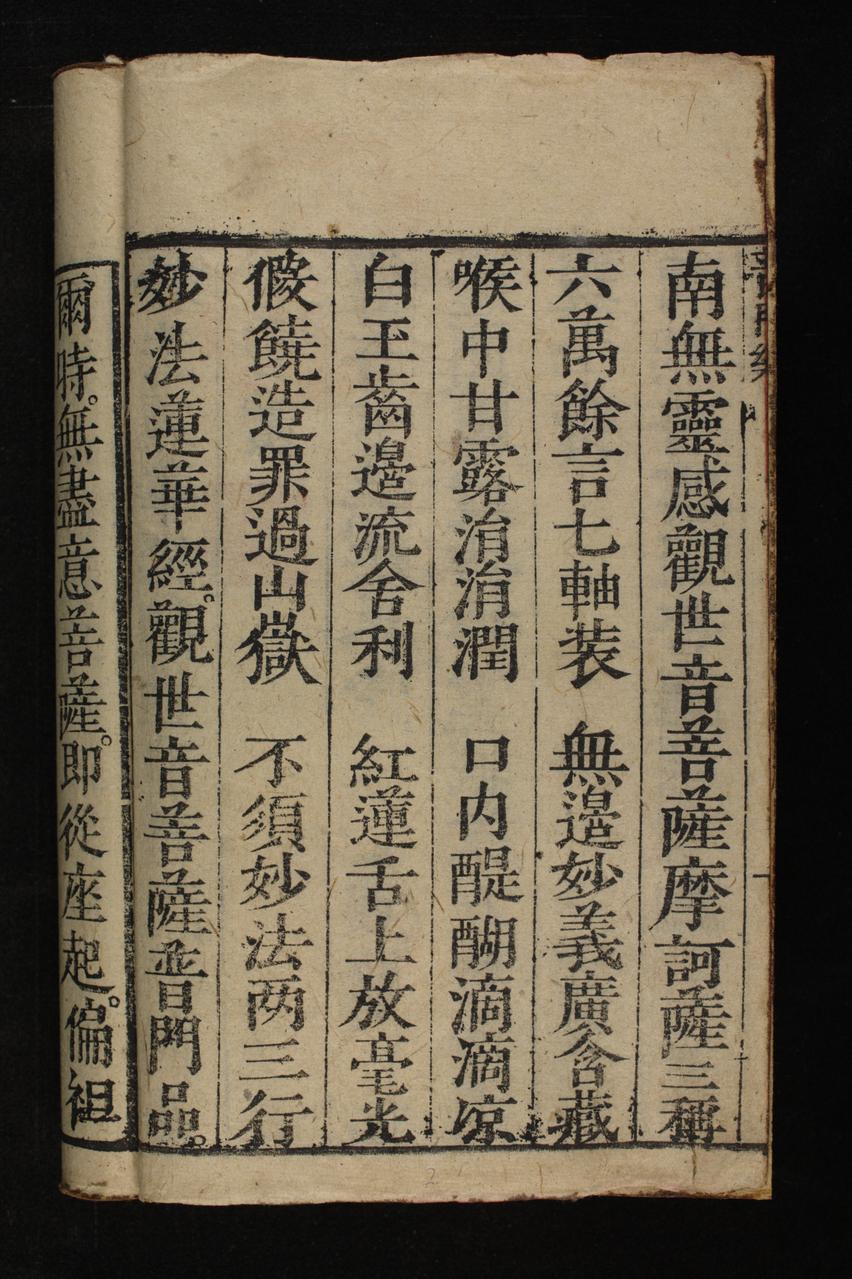 南無靈感觀世音菩薩摩訶薩三稱
六萬餘言七軸装　無邊妙義廣含藏
喉中甘露涓涓潤　口内醍醐滴滴凉
白玉齒邊流舍利　紅蓮舌上放毫光
假饒造罪過山嶽　不須妙法两三行
妙法蓮華經。觀世音菩薩普門品。
爾時。無盡意菩薩。即從座起。偏袒